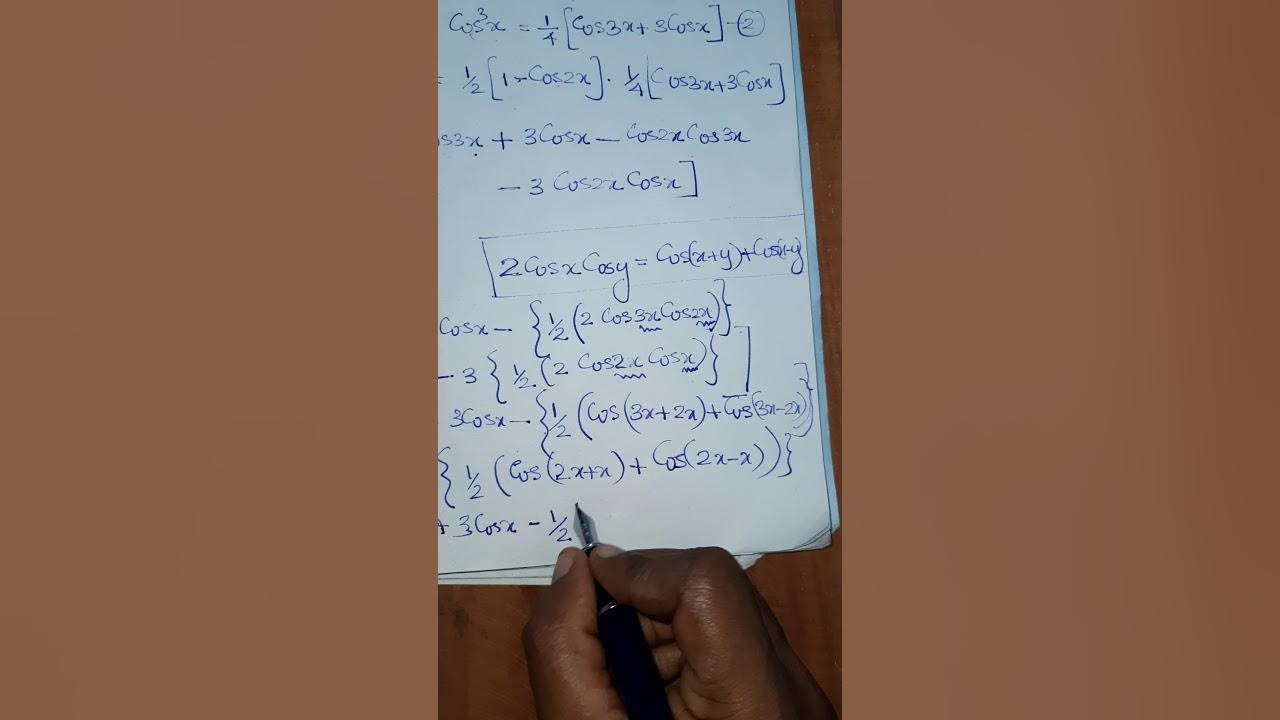 Cos³x = 1/4 [Cos3x + 3Cosx] - ②
= 1/2 [1 - Cos2x] · 1/4 [Cos3x + 3Cosx]
os3x + 3Cosx - Cos2x Cos3x
- 3 Cos2x Cosx]
2CosxCosy = Cos(x+y) + Cos(x-y)
Cosx - {1/2 (2 Cos3x Cos2x)}
- 3 {1/2 (2 Cos2x Cosx)}]
3Cosx - {1/2 (Cos(3x+2x) + Cos(3x-2x))}
{1/2 (Cos(2x+x) + Cos(2x-x))}
+ 3Cosx - 1/2